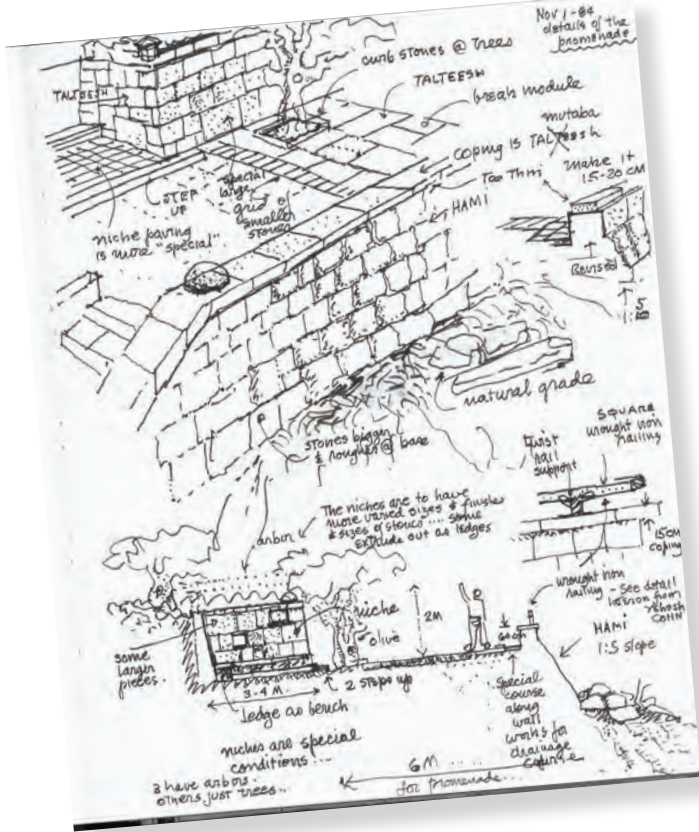 Nov 1-84
details of the
promenade
curb stones @ trees
TALTEESH
TALTEESH
break module
mutaba
coping is TALTEESH
Too thin
make it
15-20 CM
HAMI
STEP
UP
special
large
grid of
smaller
stones
niche paving
is more "special"
Revised
1:5
natural grade
stones bigger
& rougher @ base
SQUARE
wrought iron
railing
twist
rail
support
15CM
coping
The niches are to have
more varied sizes & finishes
& sizes of stones .... some
extrude out as ledges
arbor
niche
olive
2M
60 cm
wrought iron
railing - see detail
from
HAMI
1:5 slope
some
larger
pieces.
3-4 M
2 steps up
ledge as bench
special
course
along
wall
works for
drainage
course
niches are special
conditions ...
3 have arbors.
others just trees...
6M
for promenade...